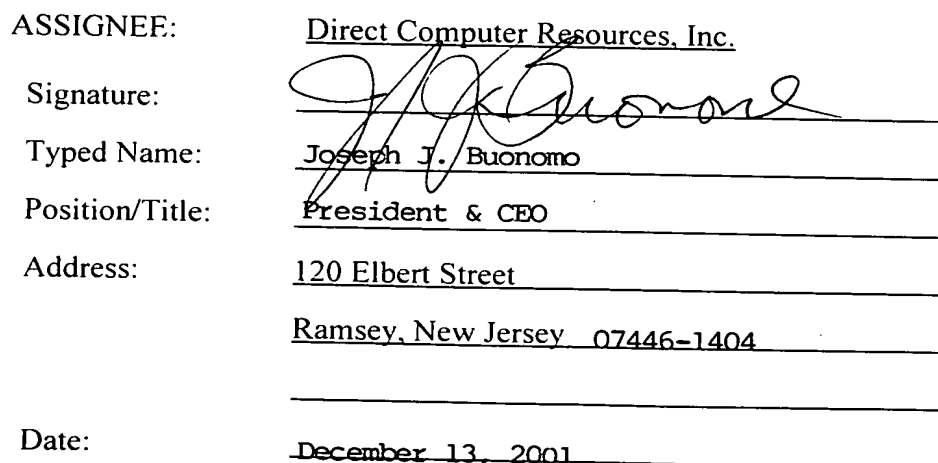 ASSIGNEE: Direct Computer Resources, Inc.
Signature: J J Buonomo
Typed Name: Joseph J. Buonomo
Position/Title: President & CEO
Address: 120 Elbert Street
Ramsey, New Jersey 07446-1404
Date: December 13, 2001